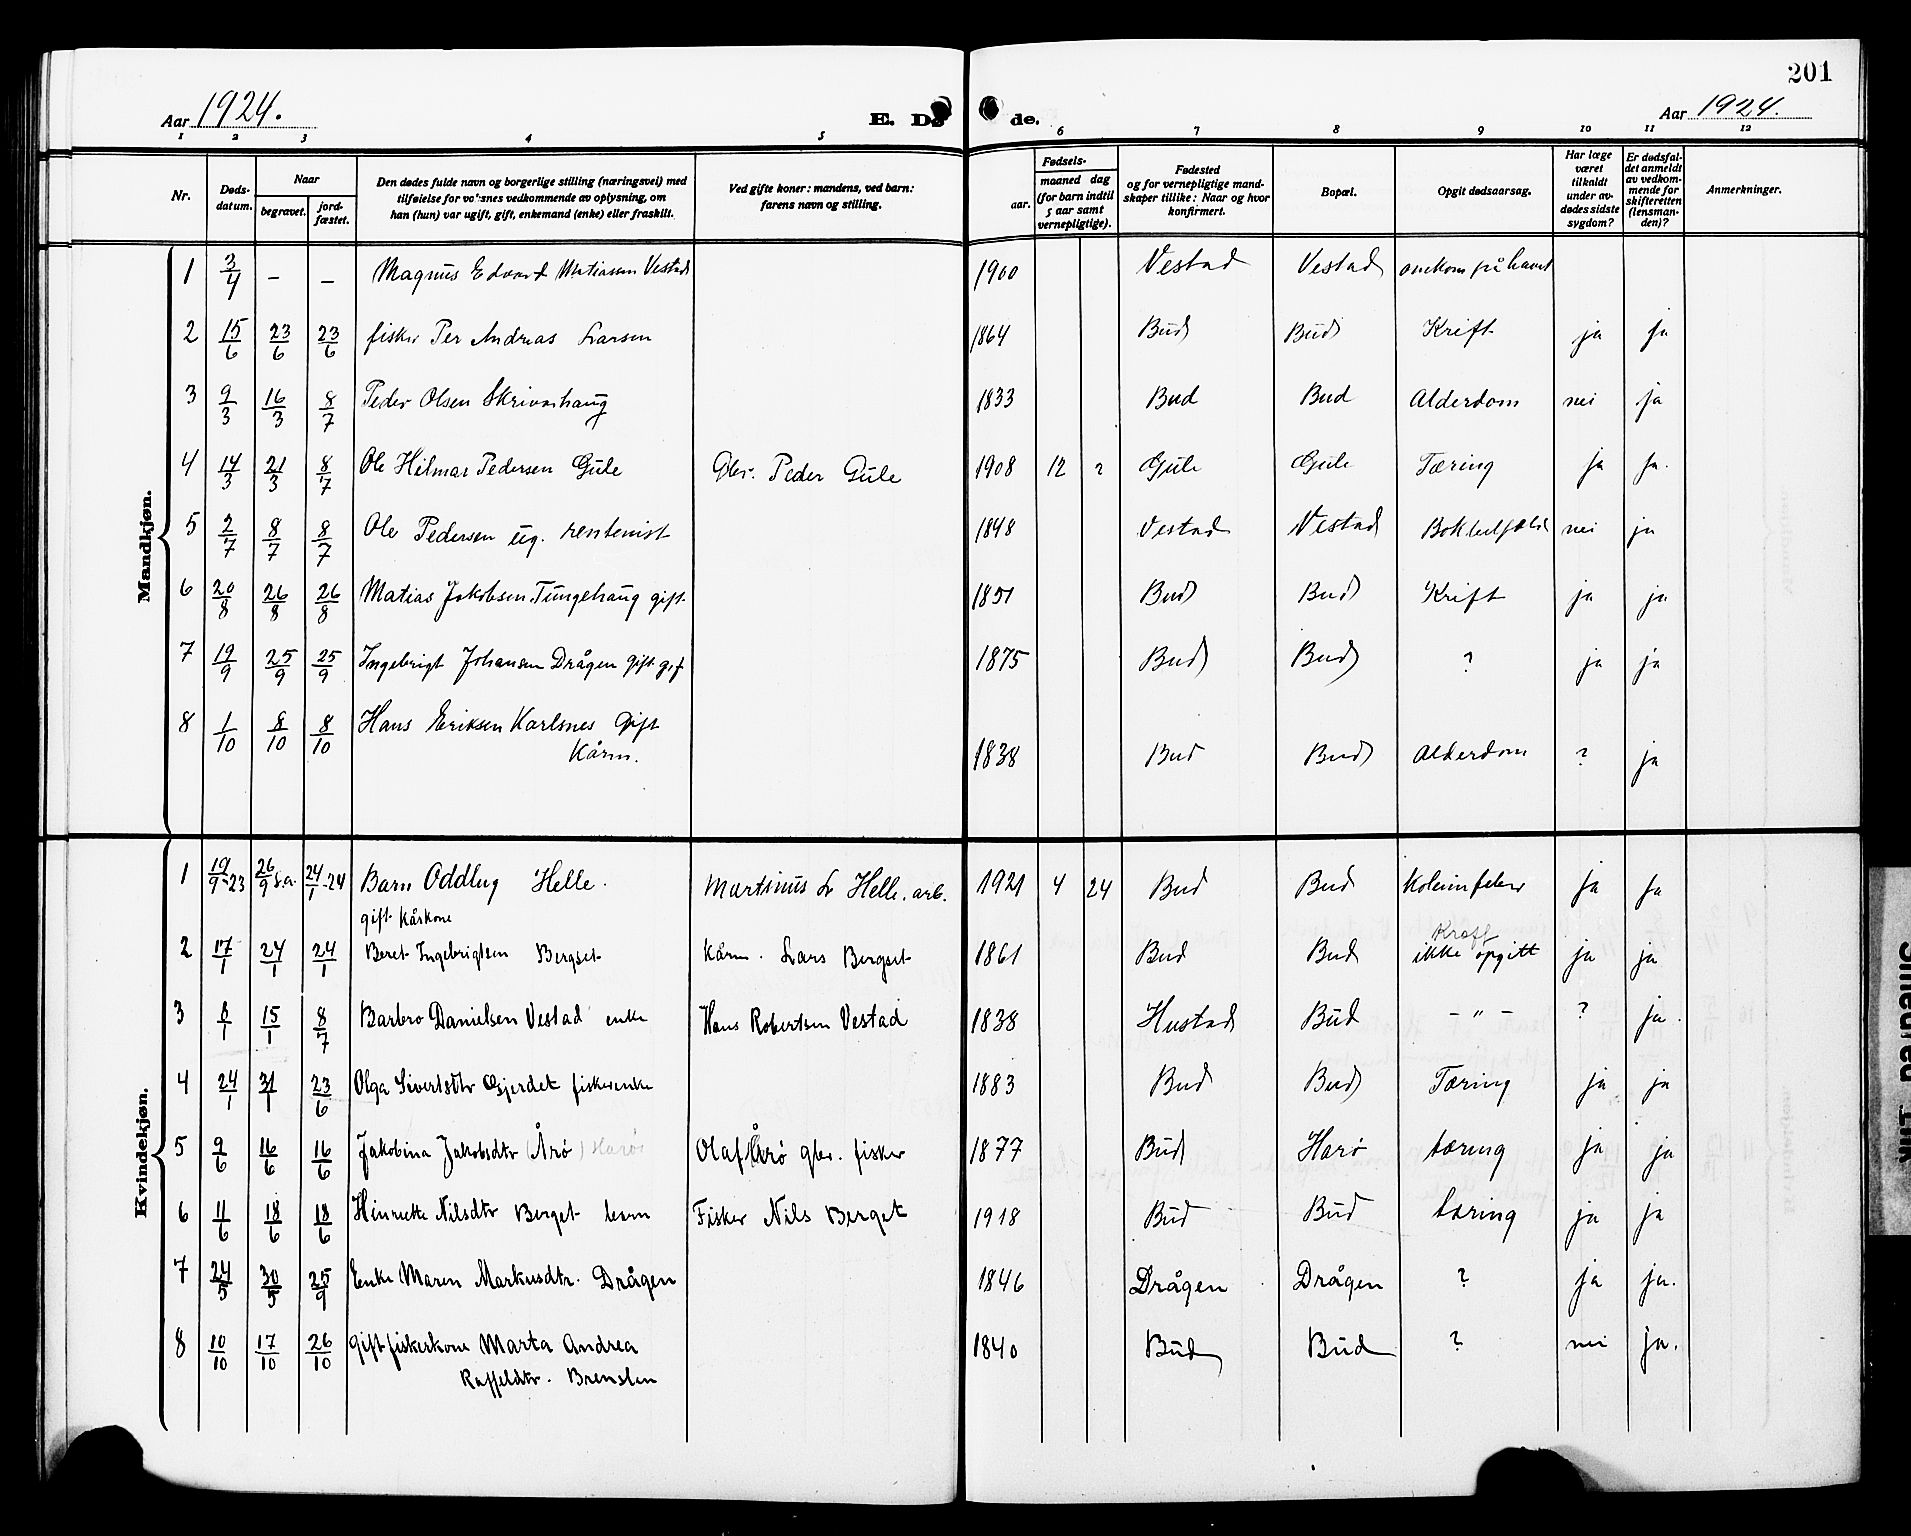 201
Aar 1924. E. Dø de. Aar 1924.
1 2 3 4 5 6 7 8 9 10 11 12
Nr. Døds-datum. Naar begravet. jord-fæstet. Den dødes fulde navn og borgerlige stilling (næringsvei) med tilføielse for voksnes vedkommende av oplysning, om han (hun) var ugift, gift, enkemand (enke) eller fraskilt. Ved gifte koner: mandens, ved barn: farens navn og stilling. Fødsels- aar. maaned dag (for barn indtil 5 aar samt vernepligtige). Fødested og for vernepligtige mand-skaper tillike: Naar og hvor konfirmert. Bopæl. Opgit dødsaarsag. Har læge været tilkaldt under av-dødes sidste sygdom? Er dødsfal-det anmeldt av vedkom-mende for skifteretten (lensman-den)? Anmerkninger.
Mandkjøn.
1 3/4 – – Magnus Edvard Matiassen Vestad 1900 Vestad Vestad omkom på havet
2 15/6 23/6 23/6 fisker Per Andreas Larsen 1864 Bud Bud Kreft ja ja
3 9/3 16/3 8/7 Peder Olsen Skrivarhaug 1833 Bud Bud Alderdom nei ja
4 14/3 21/3 8/7 Ole Hilmar Pedersen Gule Gbr. Peder Gule 1908 12 2 Gule Gule Tæring ja ja.
5 2/7 8/7 8/7 Ole Pedersen ug. rentenist 1848 Vestad Vestad nei ja
6 20/8 26/8 26/8 Matias Jakobsen Tungehaug gift 1851 Bud Bud Kreft ja ja
7 19/9 25/9 25/9 Ingebrigt Johansen Drågen gift 1875 Bud Bud ? ja ja
8 1/10 8/10 8/10 Hans Eriksen Karlsnes Gift
Kårm. 1838 Bud Bud Alderdom ? ja
Kvindekjøn.
1 19/9-23 26/9 s.a. 24/1-24 Barn Oddlug Helle. Martinus L Helle. arb. 1921 4 24 Bud Bud ja ja
gift kårkone
2 17/1 24/1 24/1 Beret Ingebrigtsen Bergset Kårm. Lars Bergset 1861 Bud Bud ikke opgitt ja ja
3 8/1 15/1 8/7 Barbro Danielsen Vestad enke Hans Robertsen Vestad 1838 Hustad Bud – " – ? ja.
4 24/1 31/1 23/6 Olga Sivertsdtr Gjerdet fiskerenke 1883 Bud Bud Tæring ja ja
5 9/6 16/6 16/6 Jakobina Jakobsdtr (Årø) Harøi Olaf Årø gbr. fisker 1877 Bud Harø tæring ja ja
6 11/6 18/6 18/6 Hinrette Nilsdtr Berget barn Fisker Nils Berget 1918 Bud Bud tæring ja ja
7 24/5 30/5 25/9 Enke Maren Markusdtr. Drågen 1846 Drågen Drågen ? ja ja.
8 10/10 17/10 26/10 gift fiskerkone Marta Andrea
Raffeldtr. Brenslen 1840 Bud Bud ? nei ja.